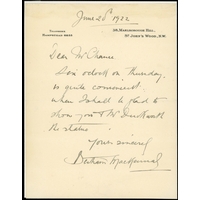 June 26th 1922
TELEPHONE
38, MARLBOROUGH HILL,
ST. JOHN'S WOOD, N.W.
Dear Mr Chance
Six oclock on Thursday
is quite convenient
when I shall be glad to
show you & Mr
the statue
Yours sincerely
Bertram Mackennal